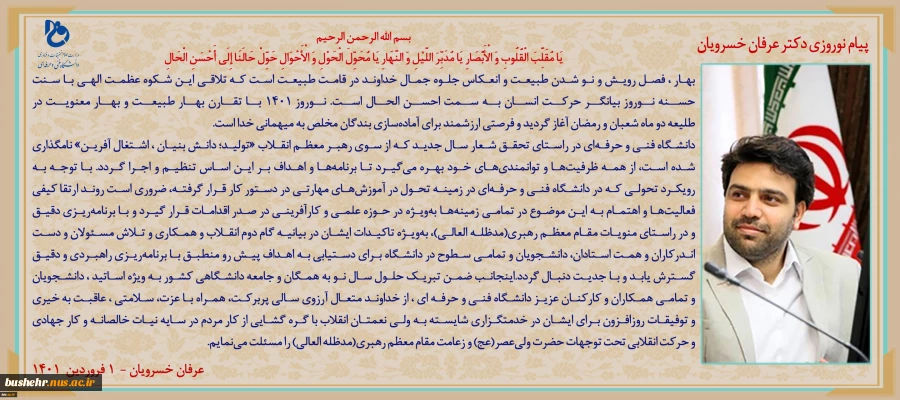 پیام نوروزی دکتر عرفان خسرویان
بسم الله الرحمن الرحیم
یَا مُقَلِّبَ الْقُلُوبِ وَ الْأَبْصَارِ یَا مُدَبِّرَ اللَّیْلِ وَ النَّهَارِ یَا مُحَوِّلَ الْحَوْلِ وَ الْأَحْوَالِ حَوِّلْ حَالَنَا إِلَی أَحْسَنِ الْحَالِ
بهار ، فصل رویش و نو شدن طبیعت و انعکاس جلوه جمال خداوند در قامت طبیعت است که تلاقی این شکوه عظمت الهی با سنت
حسنه نوروز بیانگر حرکت انسان به سمت احسن الحال است. نوروز ۱۴۰۱ با تقارن بهار طبیعت و بهار معنویت در
طلیعه دو ماه شعبان و رمضان آغاز گردید و فرصتی ارزشمند برای آماده‌سازی بندگان مخلص به میهمانی خدا است.
دانشگاه فنی و حرفه‌ای در راستای تحقق شعار سال جدید که از سوی رهبر معظم انقلاب «تولید؛ دانش بنیان ، اشتغال آفرین» نامگذاری
شده است، از همه ظرفیت‌ها و توانمندی‌های خود بهره می‌گیرد تا برنامه‌ها و اهداف بر این اساس تنظیم و اجرا گردد. با توجه به
رویکرد تحولی که در دانشگاه فنی و حرفه‌ای در زمینه تحول در آموزش‌های مهارتی در دستور کار قرار گرفته، ضروری است روند ارتقا کیفی
فعالیت‌ها و اهتمام به این موضوع در تمامی زمینه‌ها به‌ویژه در حوزه علمی و کارآفرینی در صدر اقدامات قرار گیرد و با برنامه‌ریزی دقیق
و در راستای منویات مقام معظم رهبری(مدظله العالی)، به‌ویژه تاکیدات ایشان در بیانیه گام دوم انقلاب و همکاری و تلاش مسئولان و دست
اندرکاران و همت استادان، دانشجویان و تمامی سطوح در دانشگاه برای دستیابی به اهداف پیش رو منطبق با برنامه‌ریزی راهبردی و دقیق
گسترش یابد و با جدیت دنبال گردد.اینجانب ضمن تبریک حلول سال نو به همگان و جامعه دانشگاهی کشور به ویژه اساتید ، دانشجویان
و تمامی همکاران و کارکنان عزیز دانشگاه فنی و حرفه ای ، از خداوند متعال آرزوی سالی پربرکت، همراه با عزت، سلامتی ، عاقبت به خیری
و توفیقات روزافزون برای ایشان در خدمتگزاری شایسته به ولی نعمتان انقلاب با گره گشایی از کار مردم در سایه نیات خالصانه و کار جهادی
و حرکت انقلابی تحت توجهات حضرت ولی‌عصر(عج) و زعامت مقام معظم رهبری(مدظله العالی) را مسئلت می‌نمایم.
عرفان خسرویان - ۱ فروردین ۱۴۰۱
bushehr.nus.ac.ir